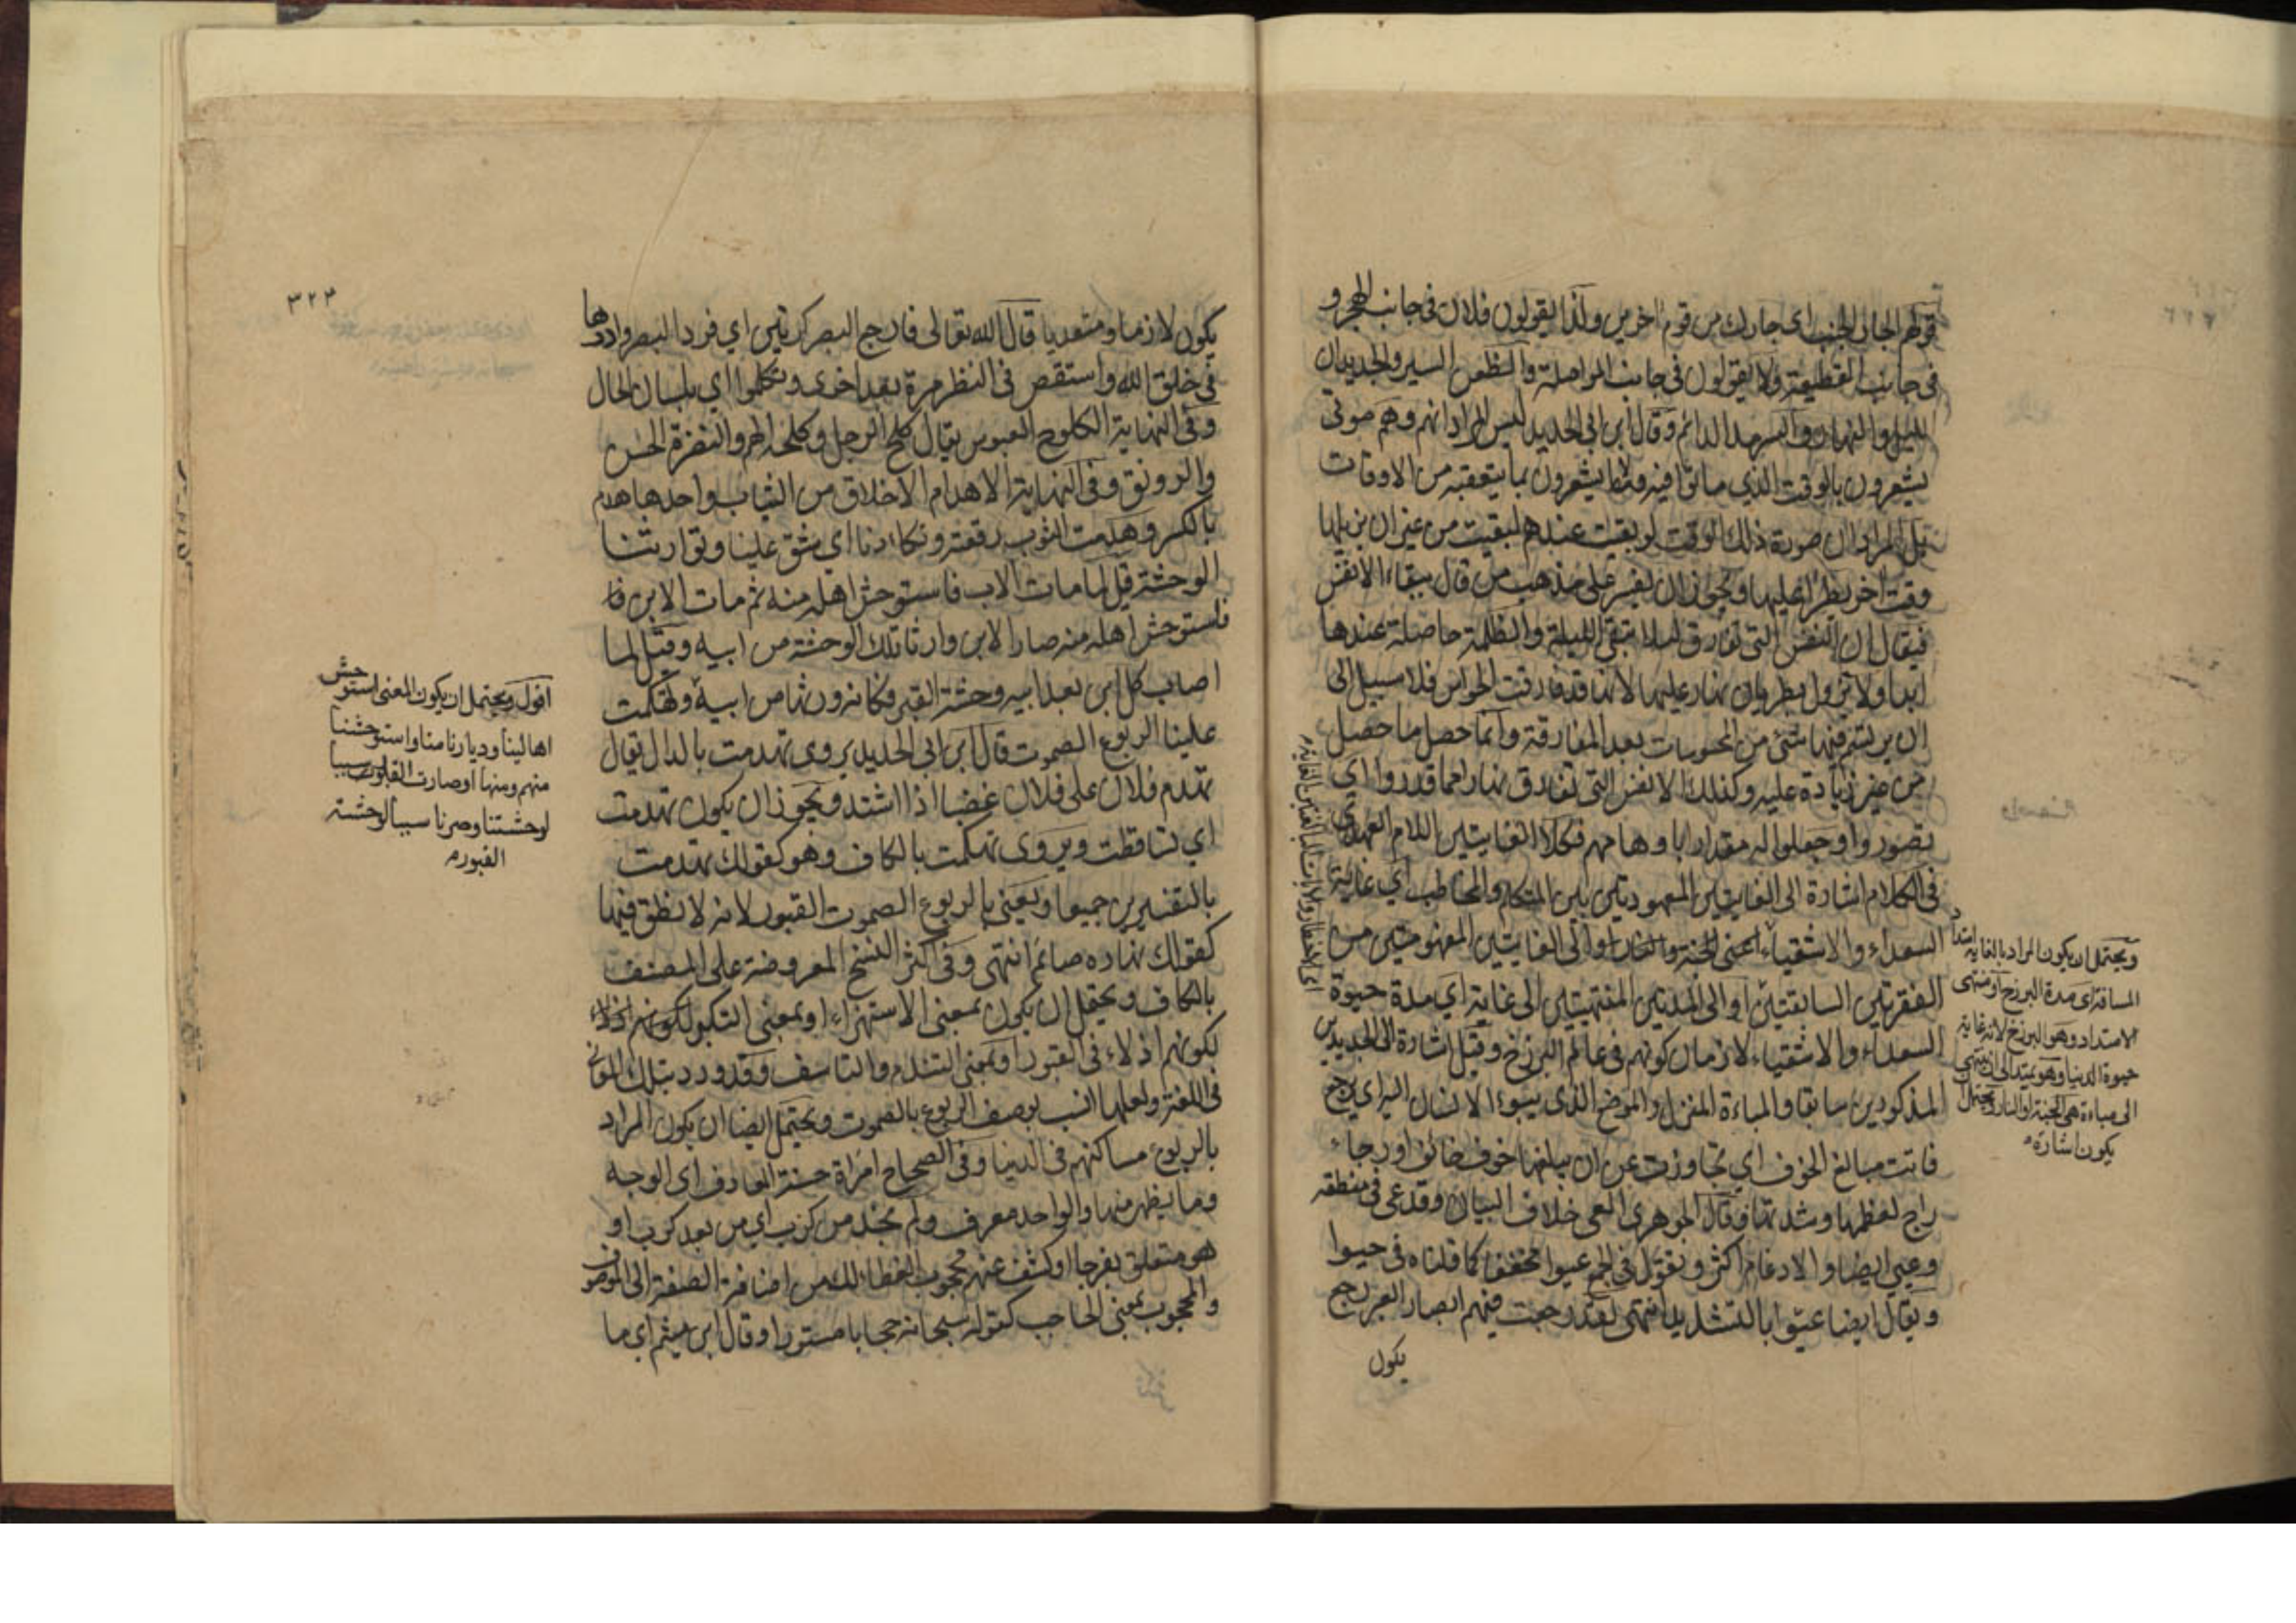 قولهم الجار الجنب اي جارك من قوم اخرين ولذا يقولون فلان في جانب الهجر و
في جانب القطيعة ولا يقولون في جانب المواصلة والظعن السير والجديدان
الليل والنهار والسرمد الدائم وقال ابن ابي الحديد ليس المراد انهم وهم موتى
يشعرون بالوقت الذي ماتوا فيه ولا يشعرون بما يتعقبه من الاوقات
بل المراد ان صورة ذلك الوقت لو بقيت عندهم لبقيت من غير ان يزيلها
وقت اخر يطرأ عليها ويجوز ان يفسر على مذهب من قال ببقاء الانفس
فيقال ان النفس التي تفارق ليلا تبقى الليلة والظلمة حاصلة عندها
ابدا ولا تزول بطريان نهار عليها لانها قد فارقت الحواس فلا سبيل الى
ان يرتسم فيها شئ من المحسوسات بعد المفارقة وانما حصل ما حصل
من غير زيادة عليه وكذلك الانفس التي تفارق نهارا مما قدروا اي
تصوروا وجعلوا له مقدارا باوهامهم فكلا الغايتين اللام العهدي
في الكلام اشارة الى الغايتين المعهودتين بين المتكلم والمخاطب اي غاية
السعداء والاشقياء اعني الجنة والنار او الى الغايتين المفهومتين من
الفقرتين السابقتين او الى المدتين المنتهيتين الى غاية اي مدة حيوة
السعداء والاشقياء لازمان كونهم في عالم البرزخ وقيل اشارة الى الجديدين
المذكورين سابقا والمباءة المنزل والموضع الذي يبوء الانسان اليه اي يرجع
فاتت مبالغ الخوف اي تجاوزت عن ان يبلغها خوف خائف او رجاء
راج لعظمها وشدتها وقال الجوهري العي خلاف البيان وقد عي في منطقه
وعيي ايضا والادغام اكثر وتقول في الجمع عيوا مخففا كما قلناه في حيوا
ويقال ايضا عيوا بالتشديد انتهى لقد رجعت فيهم ابصار العبر رجع
يكون
ويحتمل ان يكون المراد بالغاية امتداد
المسافة اي مدة البرزخ او منتهى
الامتداد وهو البرزخ لانه غاية
حيوة الدنيا وهو يمتد الى ان ينتهي
الى مباءة هي الجنة او النار ويحتمل
يكون اشارة
٣٢٣
يكون لازما ومتعديا قال الله تعالى فارجع البصر كرتين اي فرد البصر وادرها
في خلق الله واستقص في النظر مرة بعد اخرى وتكلموا اي بلسان الحال
وفي النهاية الكلوح العبوس يقال كلح الرجل وكلحه الهم والنضرة الحسن
والرونق وفي النهاية الاهدام الاخلاق من الثياب واحدها هدم
بالكسر وهدمت الثوب رقعته وتكاءدنا اي شق علينا وتوارثنا
الوحشة قيل لما مات الاب فاستوحش اهله منه ثم مات الابن فا
فاستوحش اهله منه صار الابن وارثا تلك الوحشة من ابيه وقيل لما
اصاب كل ابن بعد ابيه وحشة القبر فكانه ورثها من ابيه وتهكمت
علينا الربوع الصموت قال ابن ابي الحديد يروى تهدمت بالدال يقال
تهدم فلان على فلان غضبا اذا اشتد ويجوز ان يكون تهدمت
اي تساقطت ويروى تهكمت بالكاف وهو كقولك تهدمت
بالتفسيرين جميعا ويعني بالربوع الصموت القبور لانه لا نطق فيها
كقولك نهاره صائم انتهى وفي اكثر النسخ المعروضة على المصنف
بالكاف ويحتمل ان يكون بمعنى الاستهزاء او بمعنى التكبر لكونهم اذلاء
لكونهم اذلاء في القبور او بمعنى التندم والتاسف وقد ورد بتلك المعاني
في اللغة ولعلها انسب بوصف الربوع بالصموت ويحتمل ايضا ان يكون المراد
بالربوع مساكنهم في الدنيا وفي الصحاح امراة حسنة المعارف اي الوجه
وما يظهر منها والواحد معرف ولم نجد من كرب اي من بعد كرب او
هو متعلق بفرجا او كشف عنهم محجوب الغطاء لك من اضافة الصفة الى الموصوف
والمحجوب بمعنى الحاجب كقوله سبحانه حجابا مستورا وقال ابن ميثم اي ما
اقول ويحتمل ان يكون المعنى استوحش
اهالينا وديارنا منا واستوحشنا
منهم ومنها او صارت القلوب سببا
لوحشتنا وصرنا سببا لوحشة
القبور